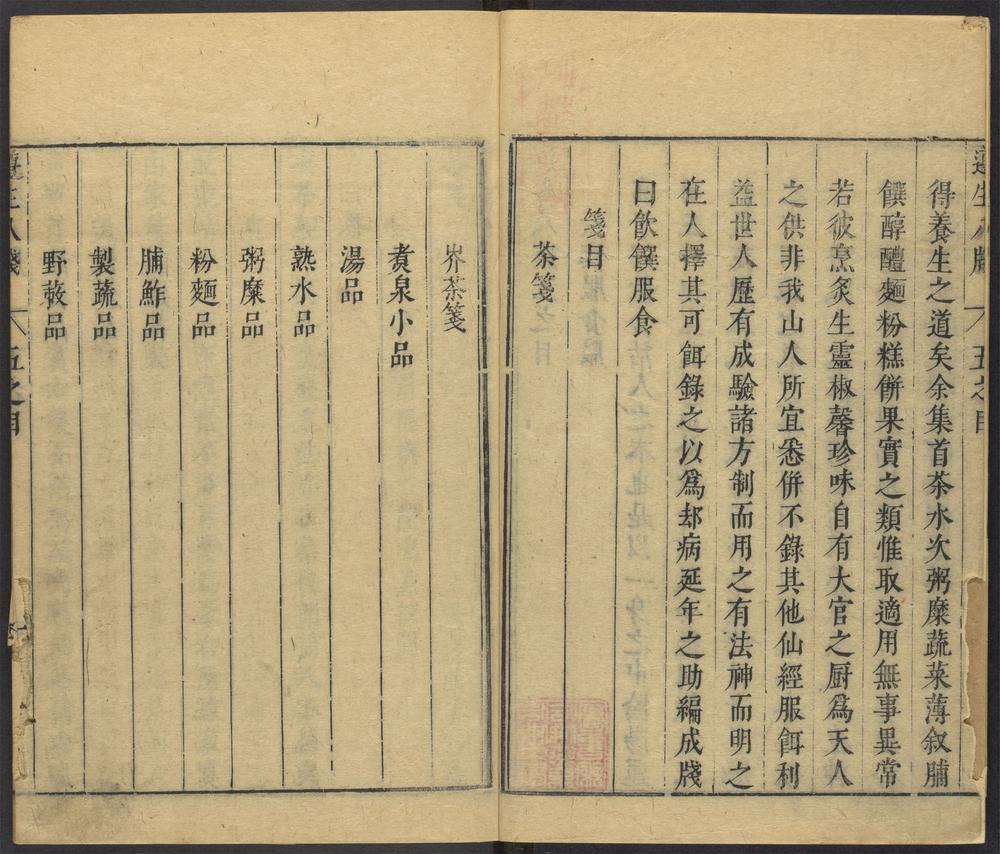 得養生之道矣余集首茶水次粥糜蔬菜薄叙脯
饌醇醴麵粉糕餅果實之類惟取適用無事異常
若彼烹炙生靈椒馨珍味自有大官之厨爲天人
之供非我山人所宜悉併不錄其他仙經服餌利
益世人歷有成驗諸方制而用之有法神而明之
在人擇其可餌錄之以爲却病延年之助編成牋
曰飲饌服食
箋目
茶箋
岕茶箋
煮泉小品
湯品
熟水品
粥糜品
粉麵品
脯鮓品
製蔬品
野蔌品
五之目